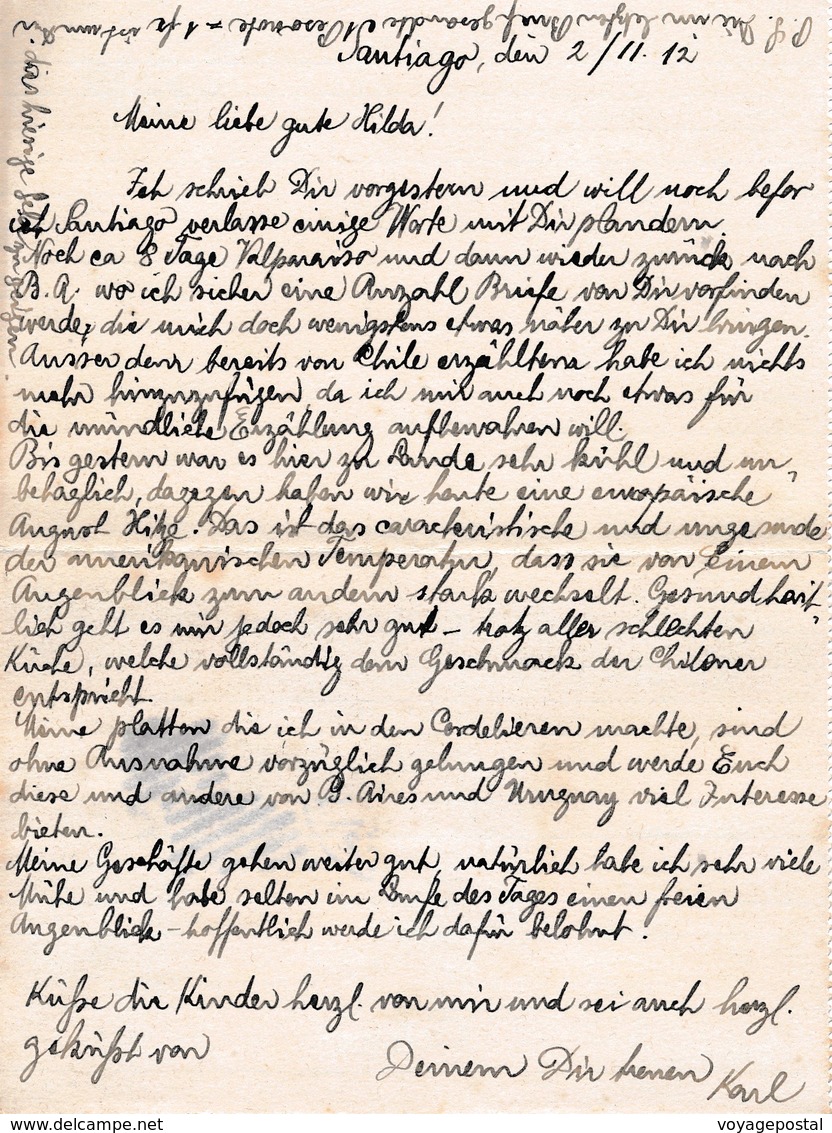 P.S. Die im letzten Brief gesandte 1 Pesonote = 1 fr ist um Dir
das hiesige Geld zu zeigen.
Santiago, den 2/11. 12
Meine liebe gute Hilda!
Ich schrieb Dir vorgestern und will noch befor
ich Santiago verlasse einige Worte mit Dir plandern.
Noch ca 8 Tage Valparaiso und dann wieder zurück nach
B. A. wo ich sicher eine Anzahl Briefe von Dir vorfinden
werde, die mich doch wenigstens etwas näher zu Dir bringen.
Ausser dem bereits von Chile erzählten habe ich nichts
mehr hinzuzufügen, da ich mir auch noch etwas für
die mündliche Erzählung aufbewahren will.
Bis gestern war es hier zu Lande sehr kühl und un-
behaglich, dagegen haben wir heute eine europäische
August Hitze. Das ist das caracteristische und ungesunde
der amerikanischen Temperatur, dass sie von einem
Augenblick zum andern stark wechselt. Gesundheit-
lich geht es mir jedoch sehr gut – trotz aller schlechten
Küche, welche vollständig dem Geschmack der Chilener
entspricht.
Meine platten die ich in den Cordelieren machte, sind
ohne Ausnahme vorzüglich gelungen und werde Euch
diese und andere von B. Aires und Uruguay viel Interesse
bieten.
Meine Geschäfte gehen weiter gut, natürlich habe ich sehr viele
Mühe und habe selten im Laufe des Tages einen freien
Augenblick – hoffentlich werde ich dafür belohnt.
Küsse die Kinder herzl. von mir und sei auch herzl.
geküsst von
Deinem Dir treuen Karl
voyagepostal